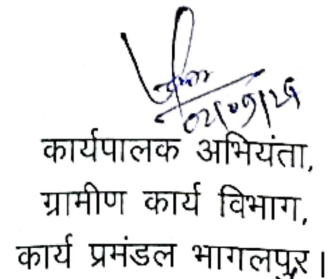 02/09/25
कार्यपालक अभियंता,
ग्रामीण कार्य विभाग,
कार्य प्रमंडल भागलपुर।